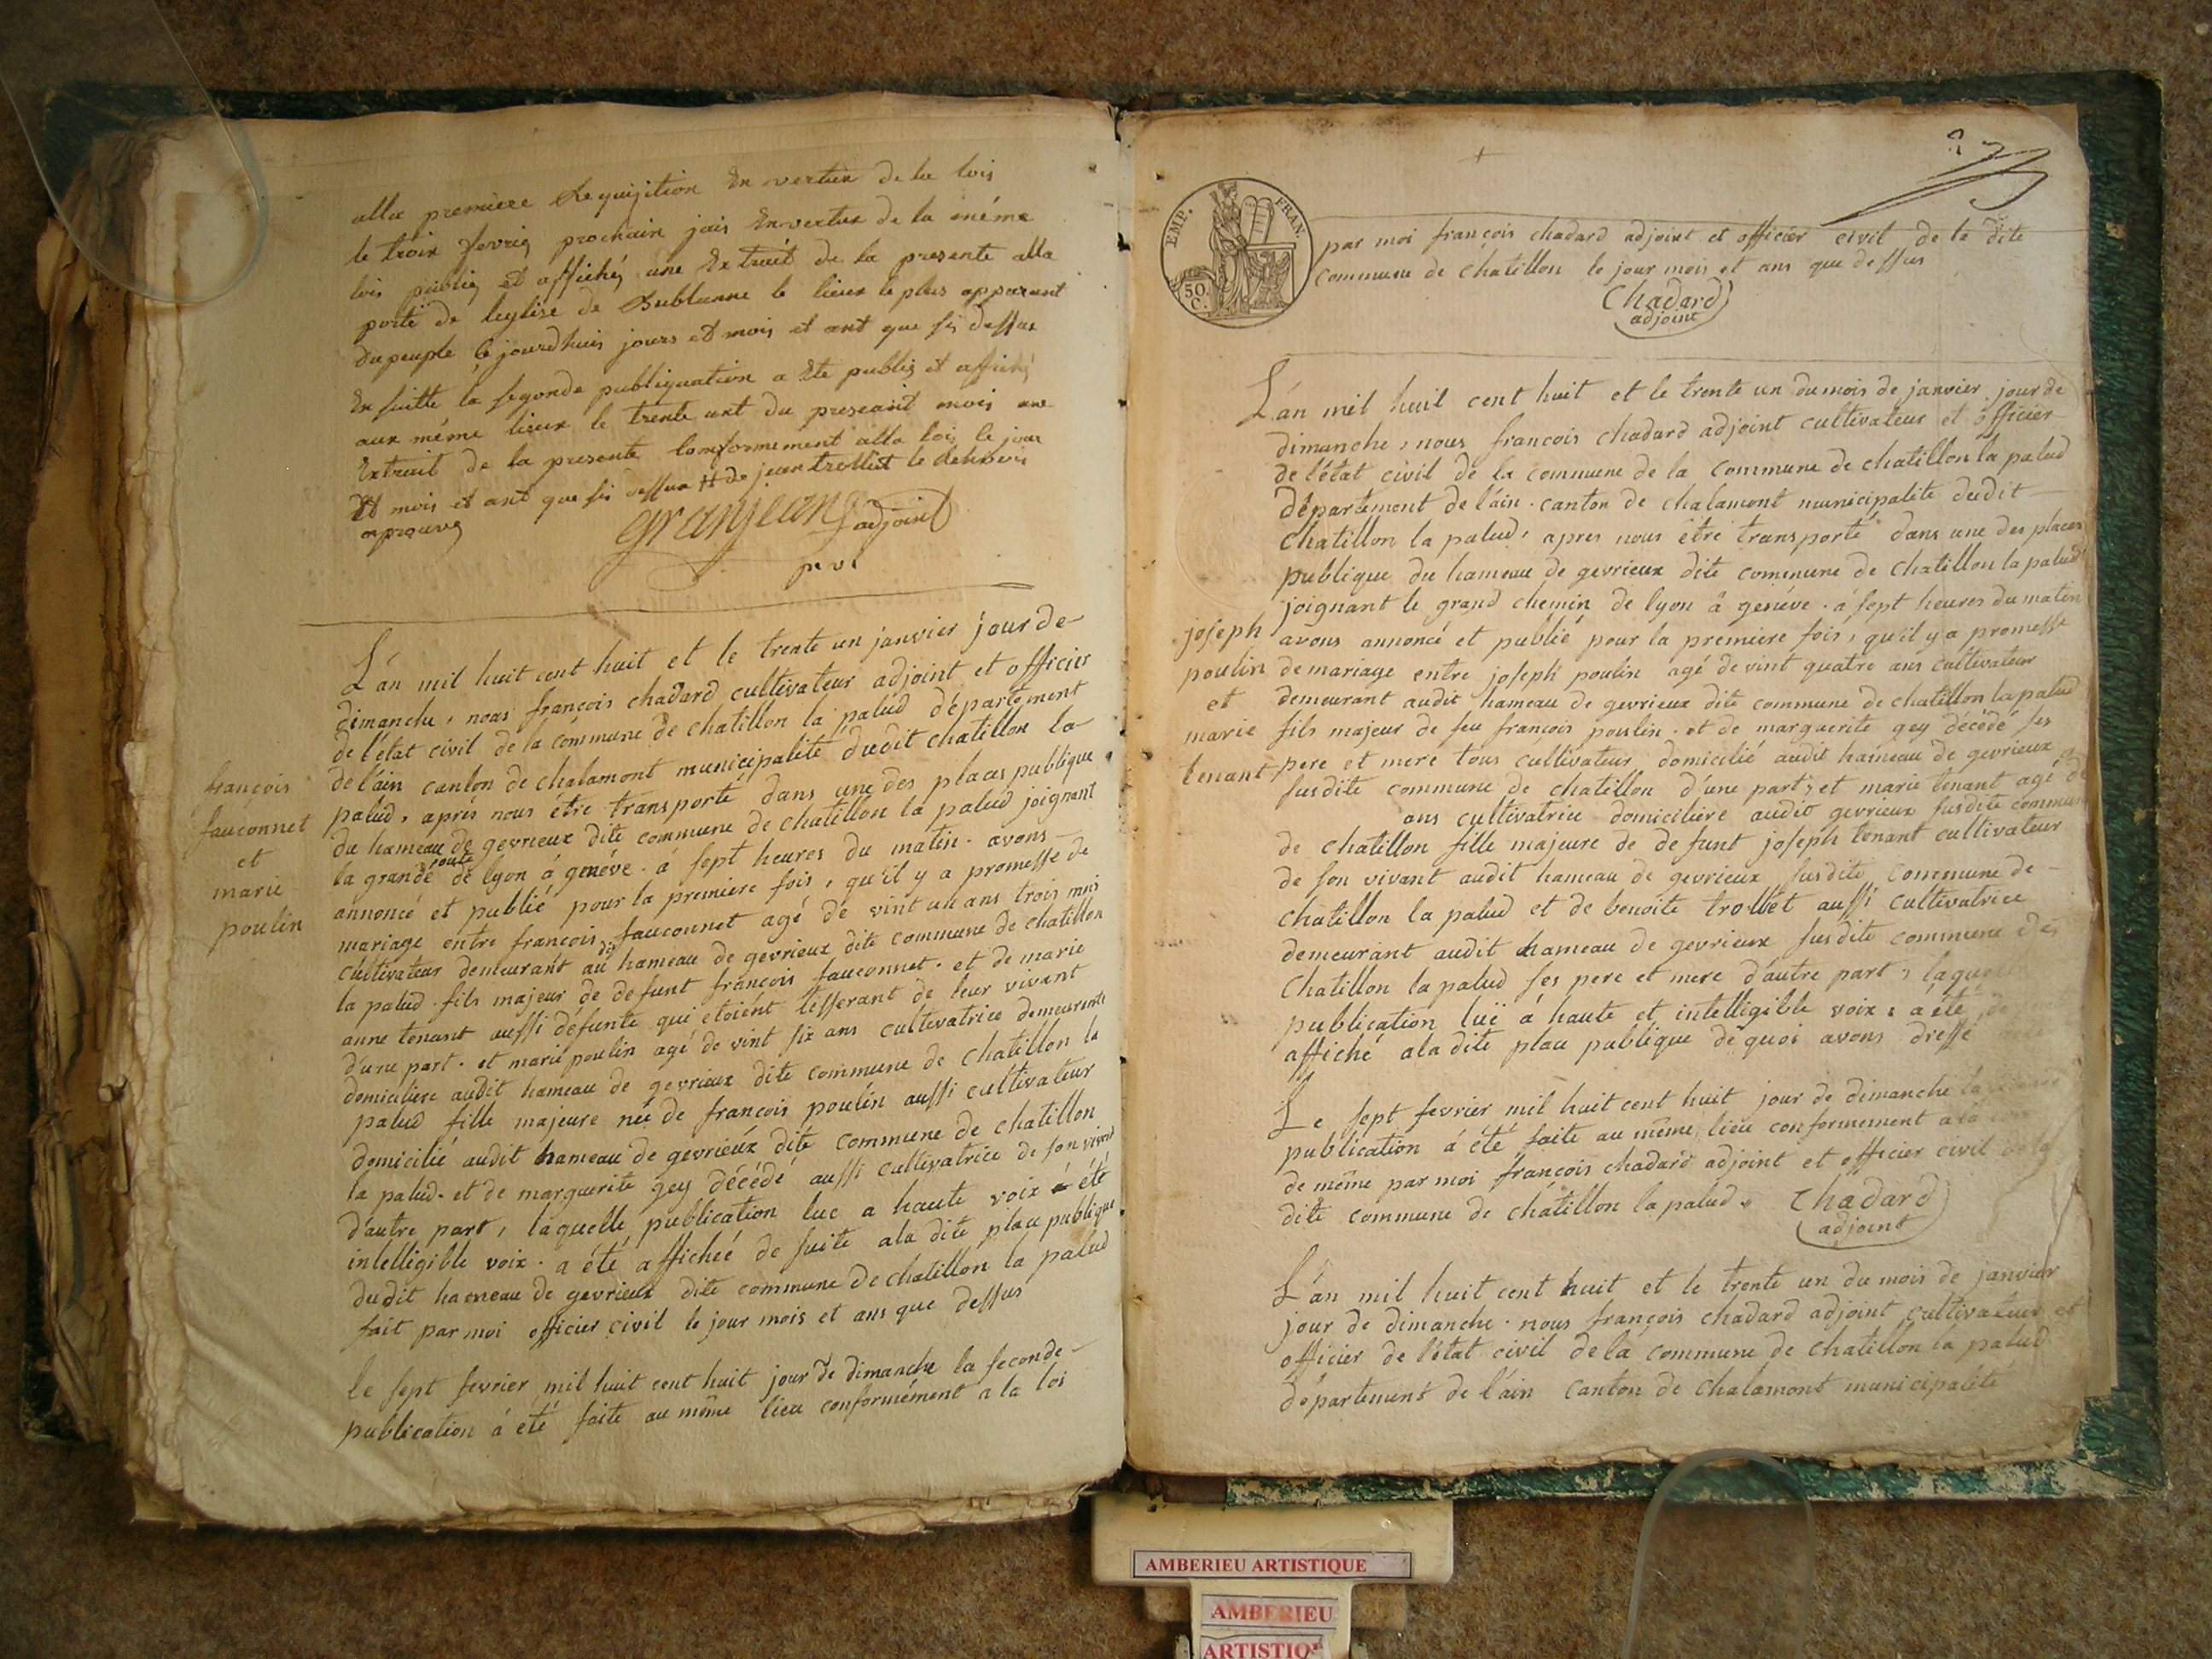 alla premiere Requisition En vertux de la lois
le troix fevrig prochain jais En vertux de la méme
lois publig et affichéz une Extrait de la presente alla
porte de leglise de Dublanne le lieux le plus apparant
du peuple ce jourdhuis jours et mois et ant que sis dessus
En suitte la segonde publiquation a Ete publig et affiché
aux méme lieux le trente unt du preseant mois une
Extrait de la presente Conformement alla lois le jour
Et mois et ant que sis dessus # de jean trolliet le dehsoris
aprouvg
granjeang adjoint
L'án mil huit cent huit et le trente un janvier jour de-
dimanche, nous françois chadard cultivateur adjoint et officier
de l'état civil de la commune de chatillon la palud département
de l'áin canton de chalamont municipalité dudit chatillon la-
palud, aprés nous être transporté dans une des places publique
du hameau de gevrieux dite commune de chatillon la palud joignant
la grande route de lyon á genéve. á sept heures du matin. avons-
annoncé et publié pour la premiere fois, qu'il y a promesse de
mariage entre françois fauconnet agé de vint un ans trois mois
cultivateur demeurant au dit hameau de gevrieux dite commune de chatillon
la palud. fils majeur de defunt françois fauconnet. et de marie
anne tenant aussi défunte qui etoient tisserant de leur vivant
d'une part. et marie poulin agé de vint six ans cultivatrice demeurente
domiciliere audit hameau de gevrieux dite commune de chatillon la
palud fille majeure née de françois poulin aussi cultivateur
domicilié audit hameau de gevrieux dite commune de chatillon
la palud. et de marguerite gey décédé aussi cultivatrice de son vivant
d'autre part, laquelle publication lue a haute voix é été
intelligible voix. a été affichée de suite ala dite place publique
dudit hameau de gevrieux dite commune de chatillon la palud
fait par moi officier civil le jour mois et ans que dessus
françois
fauconnet
et
marie
poulin
le sept fevrier mil huit cent huit jour de dimanche la seconde-
publication á été faite au même lieu conformément a la loi
27
EMP. FRAN.
50 C.
par moi françois chadard adjoint et officier civil de la dite
commune de chatillon le jour mois et ans que dessus
Chadard
adjoint
L'án mil huit cent huit et le trente un du mois de janvier jour de
dimanche, nous françois chadard adjoint cultivateur et officier
de l'état civil de la commune de la commune de chatillon la palud
département de l'áin. canton de chalamont municipalité dudit-
chatillon la palud, apres nous être transporté dans une des places
publique du hameau de gevrieux dite commune de chatillon la palud
joignant le grand chemin de lyon á genéve. á sept heures du matin
avons annoncé et publié pour la premiere fois, qu'il y a promesse
de mariage entre joseph poulin agé de vint quatre ans cultivateur
demeurant audit hameau de gevrieux dite commune de chatillon la palud
fils majeur de feu françois poulin. et de marguerite gey décédé ses
pere et mere tous cultivateur domicilié audit hameau de gevrieux
susdite commune de chatillon d'une part, et marie tenant agé de
ans cultivatrice domiciliere audit gevrieux susdite commune
de chatillon fille majeure de defunt joseph tenant cultivateur
de son vivant audit hameau de gevrieux susdite commune de-
chatillon la palud et de benoite trollet aussi cultivatrice
demeurant audit hameau de gevrieux susdite commune de
chatillon la palud ses pere et mere d'autre part, laquelle
publication lüe á haute et intelligible voix, a été
affiché ala dite place publique de quoi avons dressé
joseph
poulin
et
marie
tenant
Le sept fevrier mil huit cent huit jour de dimanche la
publication á été faite au même lieu conformement a la
de même par moi françois chadard adjoint et officier civil de la
dite commune de chátillon la palud. Chadard
adjoint
L'án mil huit cent huit et le trente un du mois de janvier
jour de dimanche. nous françois chadard adjoint cultivateur et
officier de l'état civil de la commune de chatillon la palud
département de l'áin canton de chalamont municipalité
AMBERIEU ARTISTIQUE
AMBERIEU
ARTISTIQ